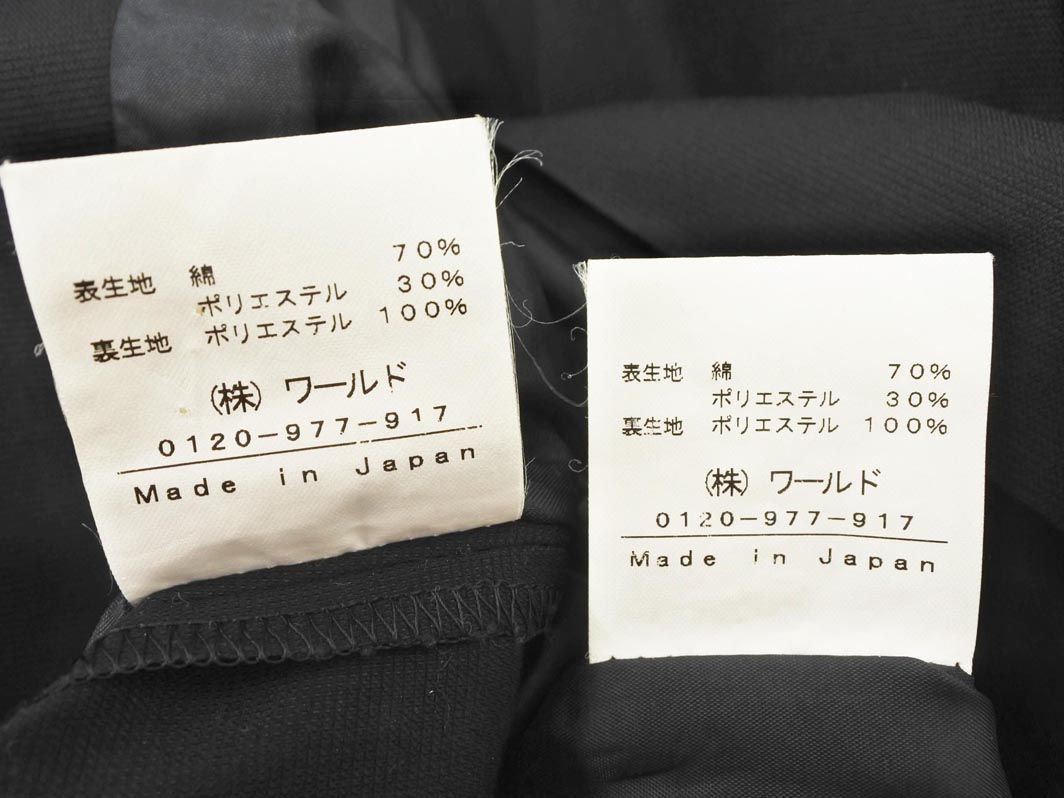 表生地 綿 70%
ポリエステル 30%
裏生地 ポリエステル 100%
(株) ワールド
0120-977-917
Made in Japan
表生地 綿 70%
ポリエステル 30%
裏生地 ポリエステル 100%
(株) ワールド
0120-977-917
Made in Japan